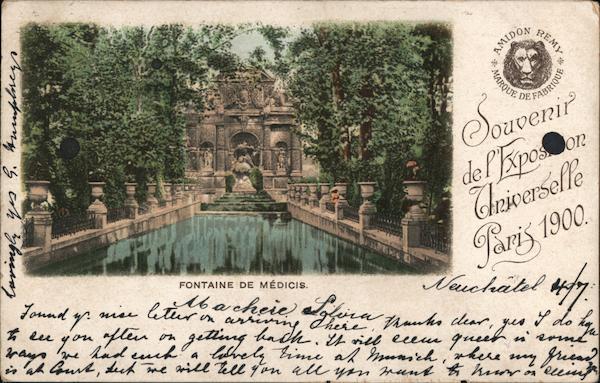 AMIDON REMY
MARQUE DE FABRIQUE
Souvenir
de l'Exposition
Universelle
Paris 1900.
FONTAINE DE MÉDICIS.
Neuchâtel 4/7.
Ma chère Silvia
Found yr. nise letter on arriving here, thanks dear, yes I do hope
to see you often on getting back. It will seem queer is some
ways we had such a lovely time at Munich, where my friend
is at Court, but we will tell you all you want to know
Lovingly